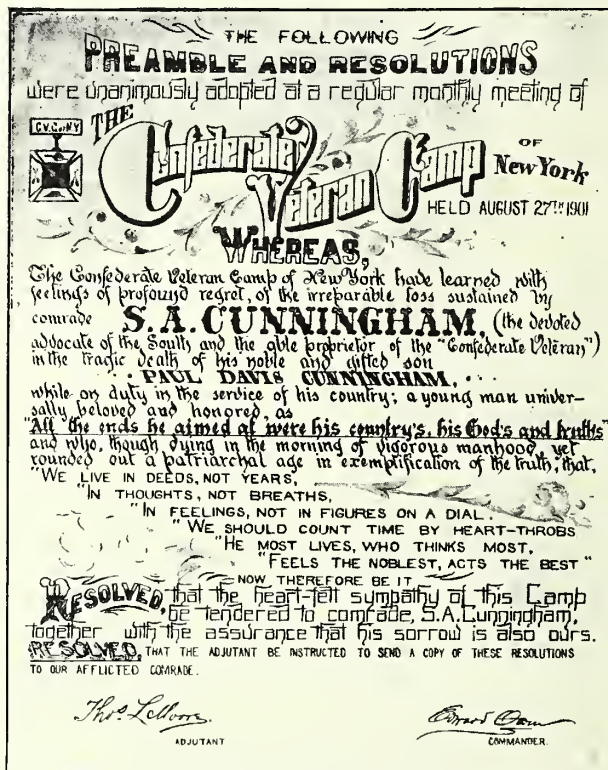 THE FOLLOWING
PREAMBLE AND RESOLUTIONS
were unanimously adopted at a regular monthly meeting of
C.V.C. of N.Y.
THE
Confederate
Veteran Camp
OF
New York
HELD AUGUST 27TH 1901
WHEREAS,
The Confederate Veteran Camp of New York have learned with
feelings of profound regret, of the irreparable loss sustained by
comrade S.A. CUNNINGHAM, (the devoted
advocate of the South and the able proprietor of the "Confederate Veteran")
in the tragic death of his noble and gifted son
· PAUL DAVIS CUNNINGHAM, ·
while on duty in the service of his country; a young man univer-
sally beloved and honored, as
"All the ends he aimed at were his country's, his God's and truths"
and who, though dying in the morning of vigorous manhood, yet
rounded out a patriarchal age in exemplification of the truth; that,
"WE LIVE IN DEEDS, NOT YEARS,
"IN THOUGHTS, NOT BREATHS,
"IN FEELINGS, NOT IN FIGURES ON A DIAL,
"WE SHOULD COUNT TIME BY HEART-THROBS
"HE MOST LIVES, WHO THINKS MOST,
"FEELS THE NOBLEST, ACTS THE BEST"
NOW THEREFORE BE IT
RESOLVED, that the heart-felt sympathy of this Camp
be tendered to comrade, S.A. Cunningham,
together with the assurance that his sorrow is also ours.
RESOLVED, THAT THE ADJUTANT BE INSTRUCTED TO SEND A COPY OF THESE RESOLUTIONS
TO OUR AFFLICTED COMRADE.
Thos. L. Moore.
ADJUTANT
Edward Owen
COMMANDER.